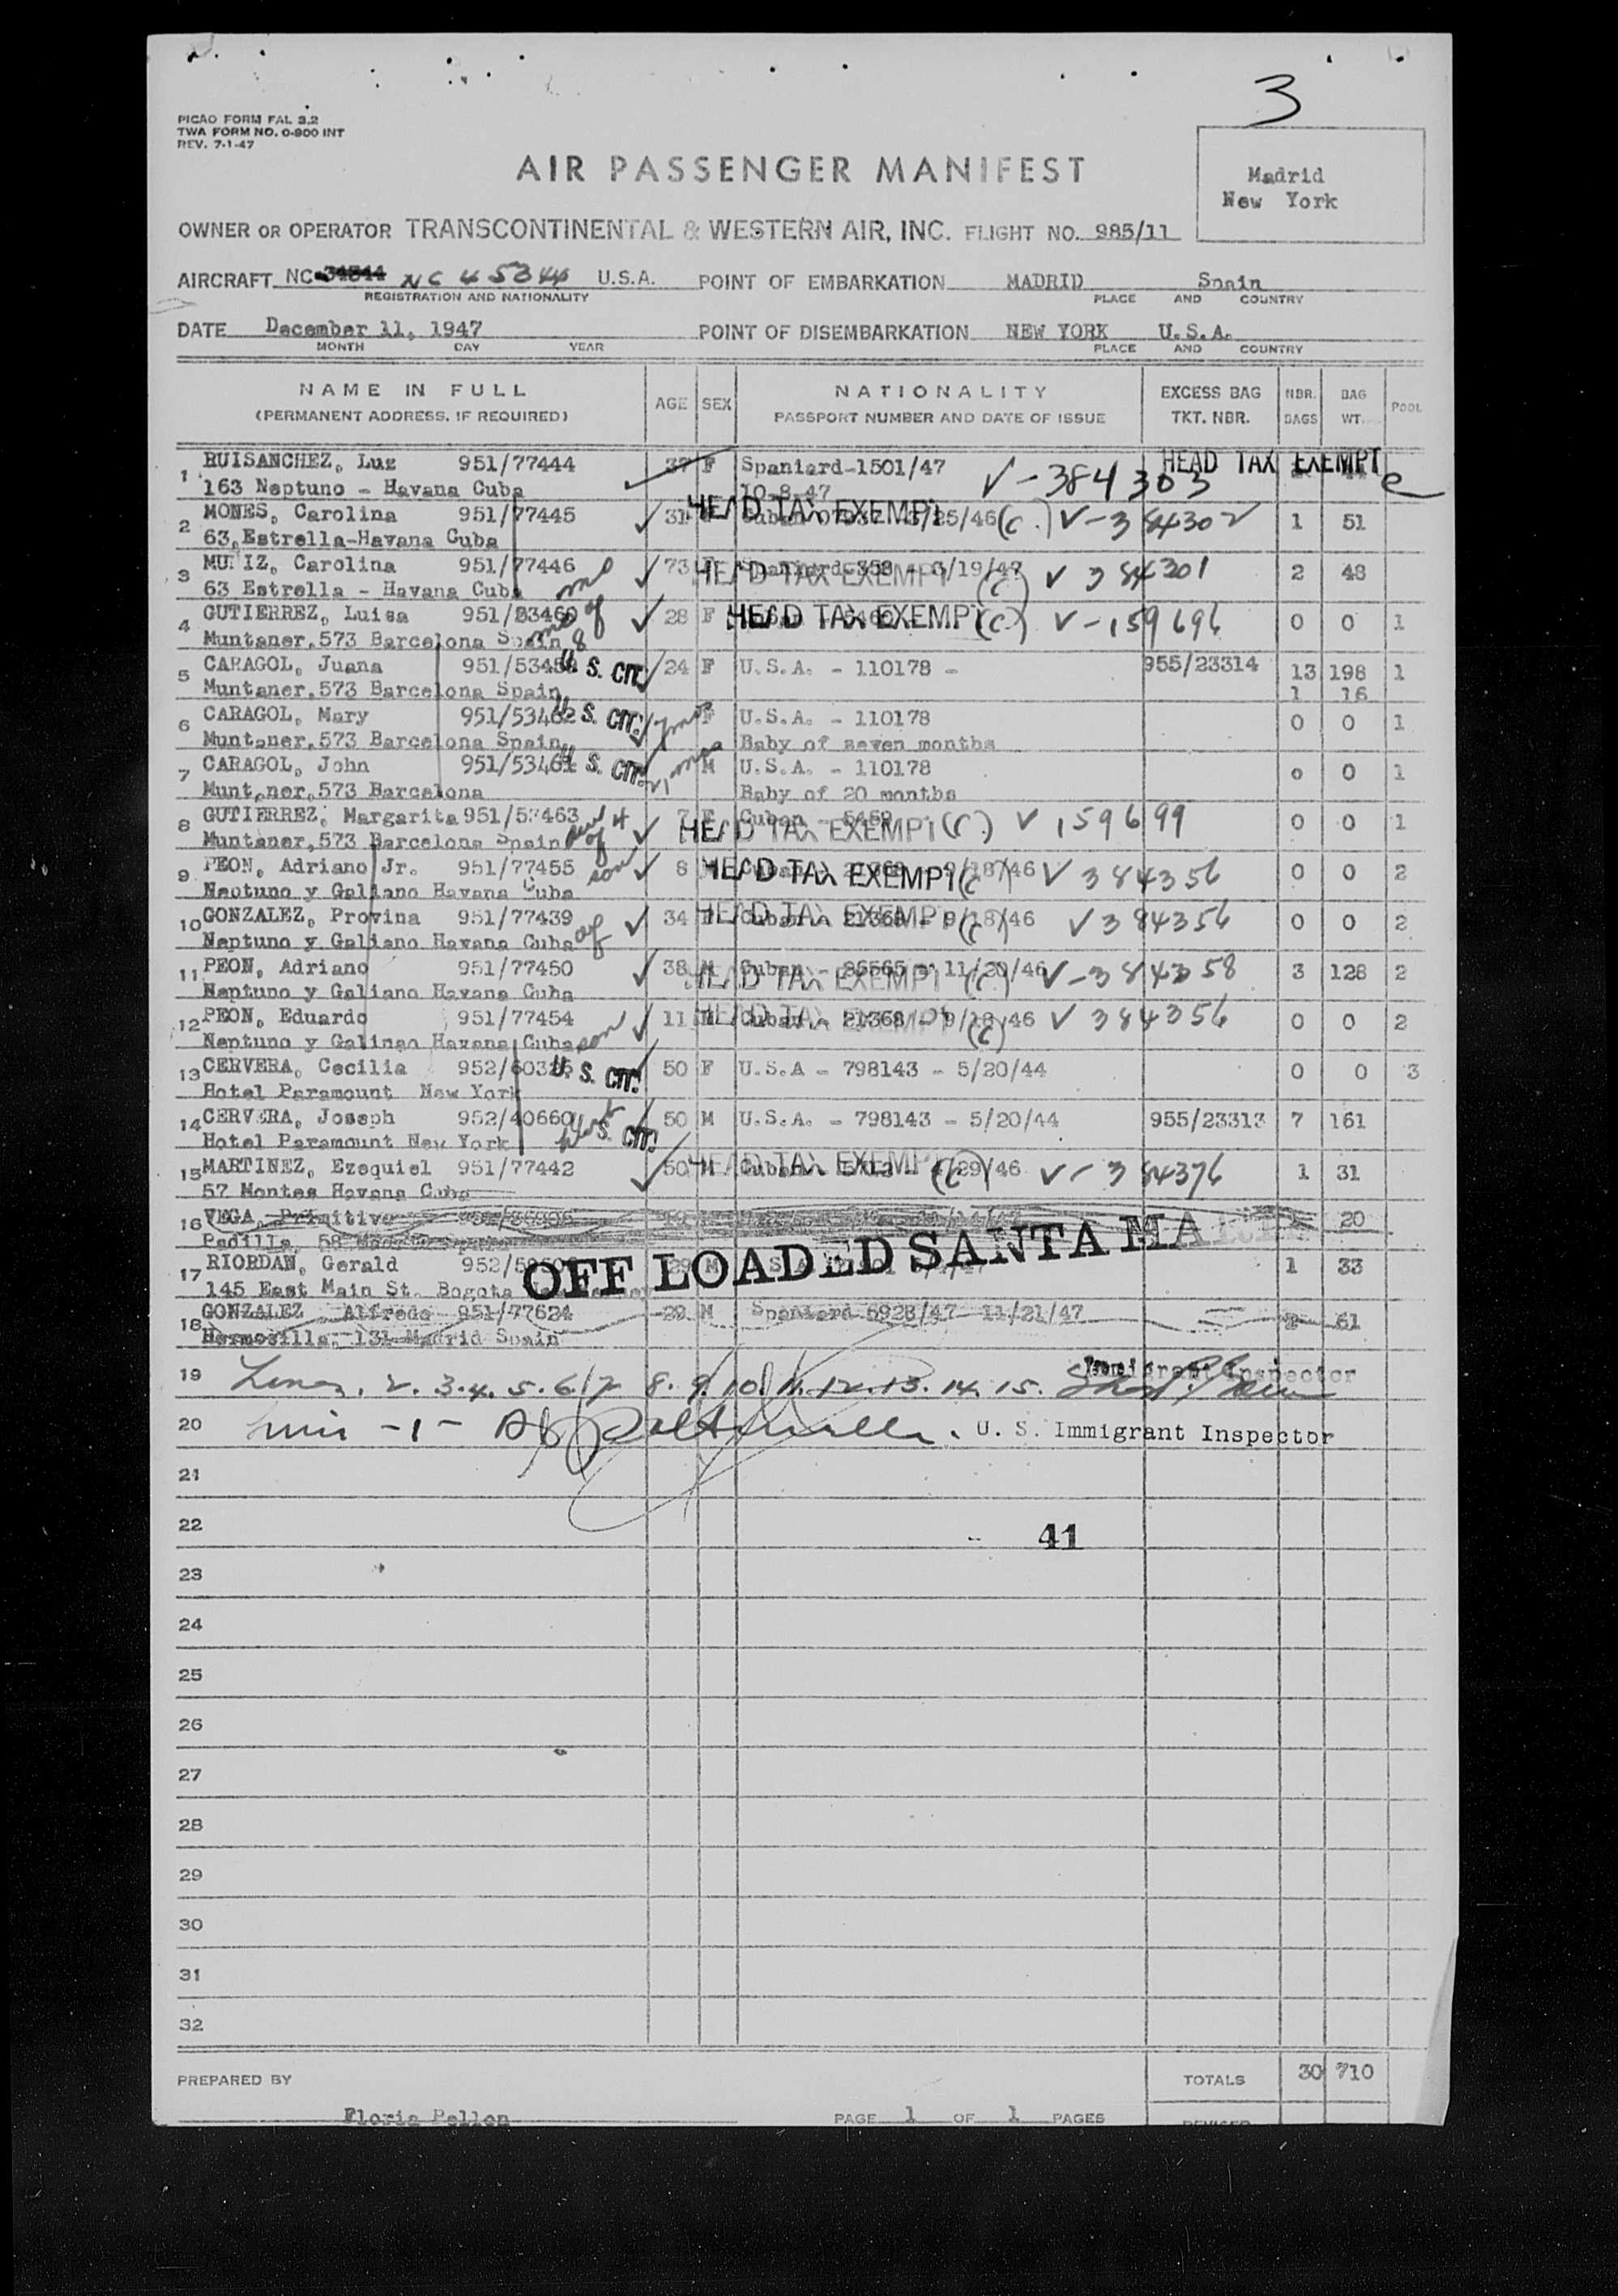 3
PICAO FORM FAL 3.2
TWA FORM NO. 0-800 INT
REV. 7-1-47
AIR PASSENGER MANIFEST
Madrid
New York
OWNER OR OPERATOR TRANSCONTINENTAL & WESTERN AIR, INC. FLIGHT NO. 985/11
AIRCRAFT NC 34844 NC 45344 U.S.A. POINT OF EMBARKATION MADRID Spain
REGISTRATION AND NATIONALITY PLACE AND COUNTRY
DATE December 11, 1947 POINT OF DISEMBARKATION NEW YORK U.S.A.
MONTH DAY YEAR PLACE AND COUNTRY
NAME IN FULL AGE SEX NATIONALITY EXCESS BAG NBR. BAG POOL
(PERMANENT ADDRESS, IF REQUIRED) PASSPORT NUMBER AND DATE OF ISSUE TKT. NBR. BAGS WT.
1 RUISANCHEZ, Luz 951/77444 37 F Spaniard-1501/47 V-384303 HEAD TAX EXEMPT
163 Neptuno - Havana Cuba 10-8-47
2 MONES, Carolina 951/77445 31 HEAD TAX EXEMPT /25/46 (C.) V-384302 1 51
63, Estrella-Havana Cuba
3 MUÑIZ, Carolina 951/77446 73 F Spaniard-358 - /19/47 HEAD TAX EXEMPT (C) V 384301 2 48
63 Estrella - Havana Cuba
4 GUTIERREZ, Luisa 951/53460 28 F HEAD TAX EXEMPT (C) V-159696 0 0 1
Muntaner, 573 Barcelona Spain 8
5 CARAGOL, Juana 951/5345 U. S. CIT. 24 F U.S.A. - 110178 - 955/23314 13 198 1
Muntaner, 573 Barcelona Spain 1 16
6 CARAGOL, Mary 951/53462 U. S. CIT. 7 mos F U.S.A. - 110178 0 0 1
Muntaner, 573 Barcelona Spain Baby of seven months
7 CARAGOL, John 951/53461 U. S. CIT. 21 mos M U.S.A. - 110178 0 0 1
Muntaner, 573 Barcelona Baby of 20 months
8 GUTIERREZ, Margarita 951/53463 7 F Cuban - 5459 HEAD TAX EXEMPT (C.) V 159699 0 0 1
Muntaner, 573 Barcelona Spain
9 PEON, Adriano Jr. 951/77455 son 8 HEAD TAX EXEMPT 9/18/46 (C) V 384356 0 0 2
Neptuno y Galiano Havana Cuba
10 GONZALEZ, Provina 951/77439 34 F Cuban - 21368 - 9/18/46 HEAD TAX EXEMPT (C) V 384356 0 0 2
Neptuno y Galiano Havana Cuba
11 PEON, Adriano 951/77450 38 M Cuban - 86565 - 11/20/46 HEAD TAX EXEMPT (C) V-384358 3 128 2
Neptuno y Galiano Havana Cuba
12 PEON, Eduardo 951/77454 son 11 M Cuban - 21368 - 9/18/46 HEAD TAX EXEMPT (C) V 384356 0 0 2
Neptuno y Galinao Havana Cuba
13 CERVERA, Cecilia 952/60325 U. S. CIT. 50 F U.S.A - 798143 - 5/20/44 0 0 3
Hotel Paramount New York
14 CERVERA, Joseph 952/40660 U. S. CIT. 50 M U.S.A. - 798143 - 5/20/44 955/23313 7 161
Hotel Paramount New York
15 MARTINEZ, Ezequiel 951/77442 50 M Cuban /29/46 HEAD TAX EXEMPT (C) V-384376 1 31
57 Montes Havana Cuba
16 VEGA, Primitivo 20
Padilla, 58 Madrid
OFF LOADED SANTA MARIA
17 RIORDAN, Gerald 952/ 29 M 1 33
145 East Main St. Bogota
18 GONZALEZ Alfredo 951/77624 29 M Spaniard 6928/47 11/21/47 2 61
Hermosilla, 131 Madrid Spain
19 Lines, 2. 3. 4. 5. 6. 7 8. 9. 10. 11. 12. 13. 14. 15. Immigrant Inspector
20 Line -1- U. S. Immigrant Inspector
21
22 41
23
24
25
26
27
28
29
30
31
32
PREPARED BY TOTALS 30 710
Floria Pellon PAGE 1 OF 1 PAGES